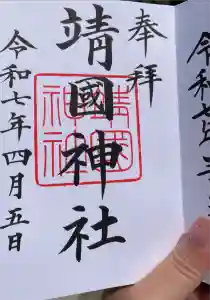 奉拝
靖國神社
靖國神社
令和七年四月五日
令和七年